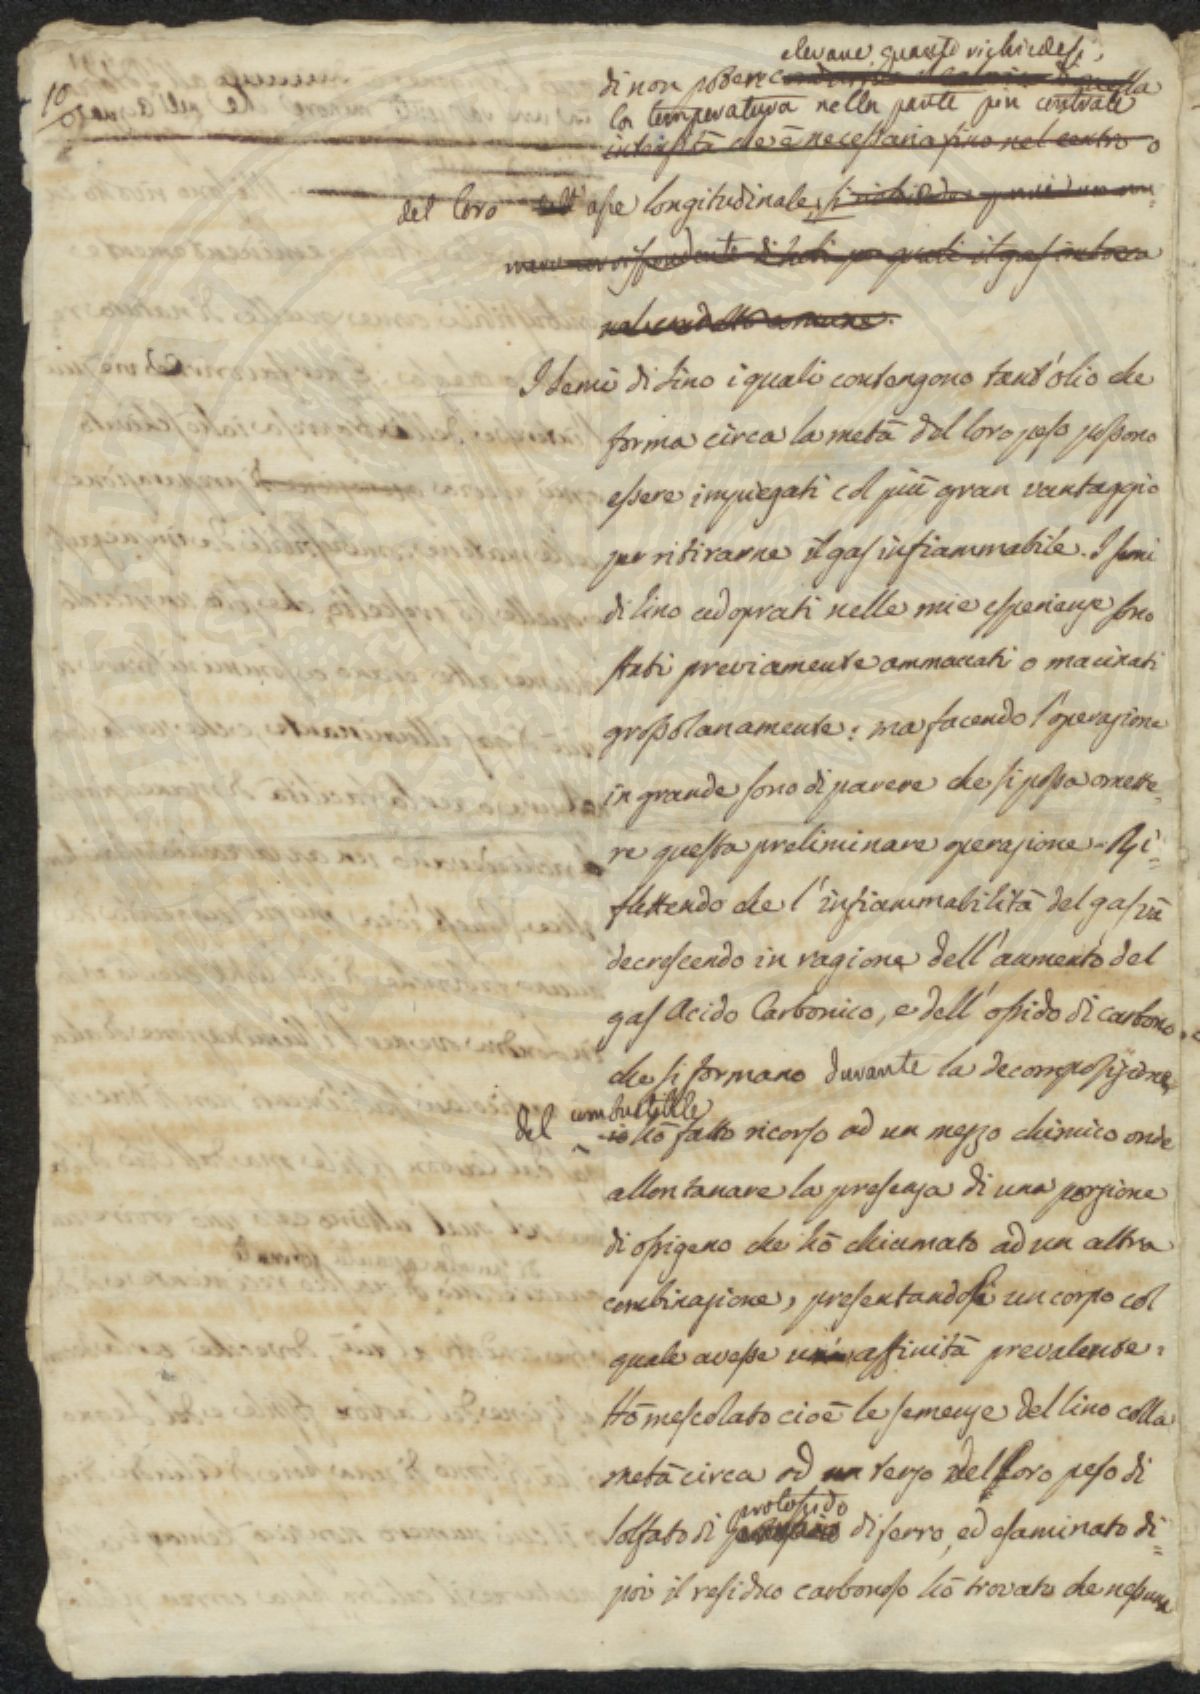 10
elevare, quanto richiedesi,
di non potere
la temperatura nella parte piu centrale
intensità che è necessaria fino nel centro o
del loro dell' asse longitudinale, si richiede
di tubi pe quali il gas
nel condotto comune.
I semi di Lino i quali contengono tant'olio che
forma circa la metà del loro peso possono
essere impiegati col più gran vantaggio
per ritirarne il gas infiammabile. I semi
di lino adoprati nelle mie esperienze sono
stati previamente ammaccati o macinati
grossolanamente; ma facendo l'operazione
in grande sono di parere che si possa omette=
re questa preliminare operazione. Ri=
flettendo che l'infiammabilità del gas và
decrescendo in ragione dell'aumento del
gas Acido Carbonico, e dell'ossido di carbono
che si formano durante la decomposizione
del combustibile
io hò fatto ricorso ad un mezzo chimico onde
allontanare la presenza di una porzione
di ossigeno che hò chiamato ad un altra
combinazione, presentandosi un corpo col
quale avesse un'affinità prevalente.
Hò mescolato cioè le semenze del lino colla
metà circa ad un terzo del loro peso di
protossido
Solfato di di ferro, ed esaminato di=
poi il residuo carbonoso hò trovato che nessuna